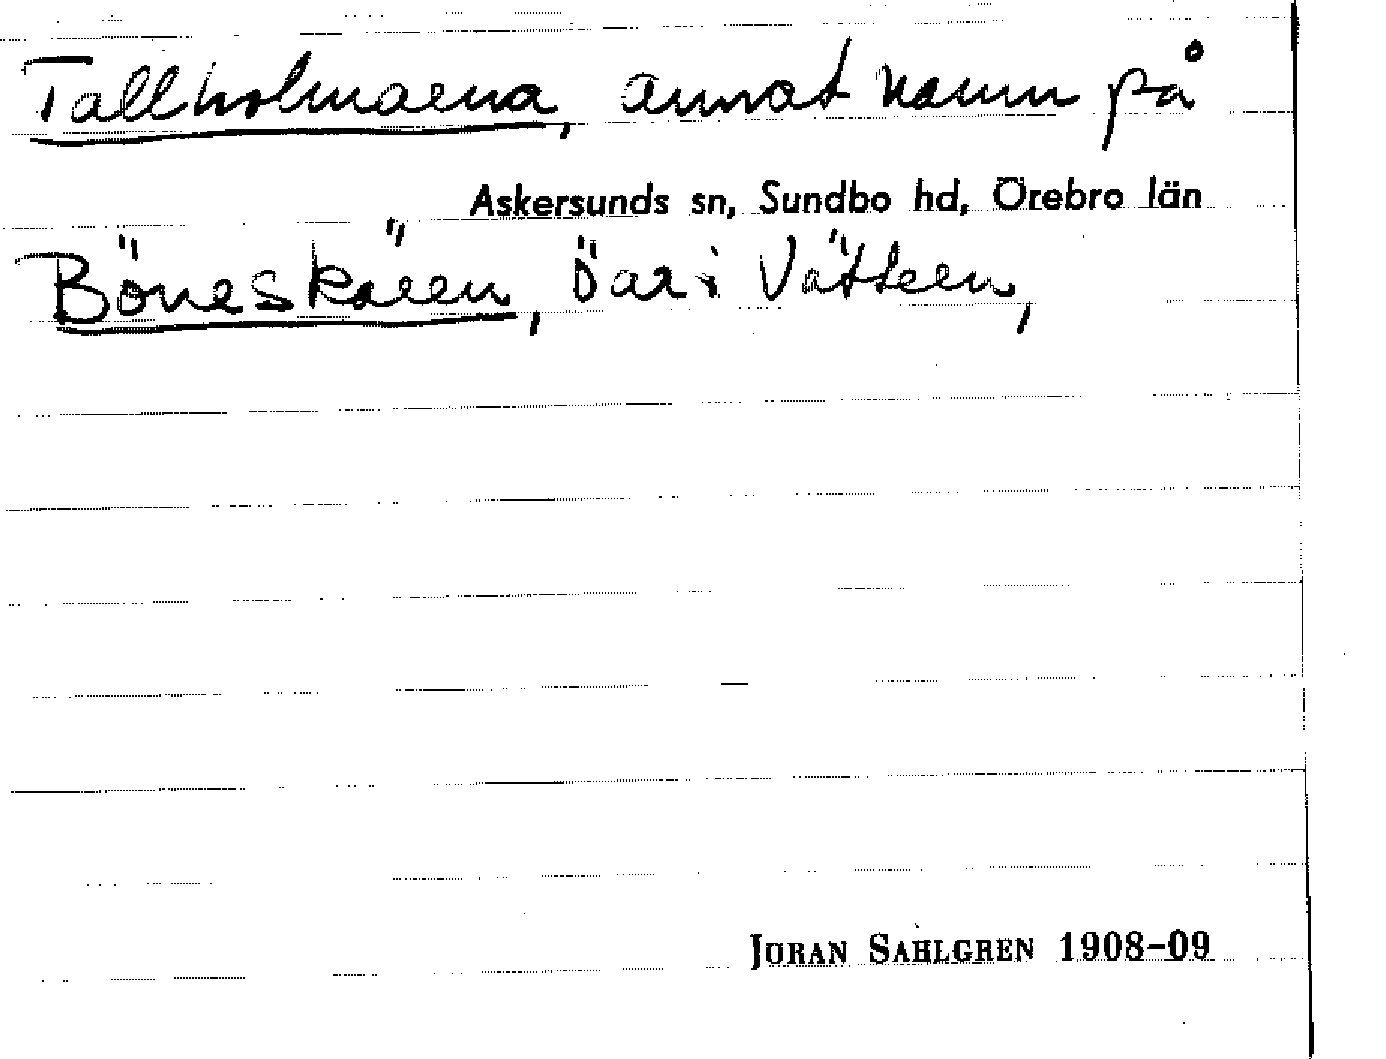 Tallholmarna, annat namn på
Askersunds sn, Sundbo hd, Örebro län
Böneskären, öar i Vättern,
JÖRAN SAHLGREN 1908–09